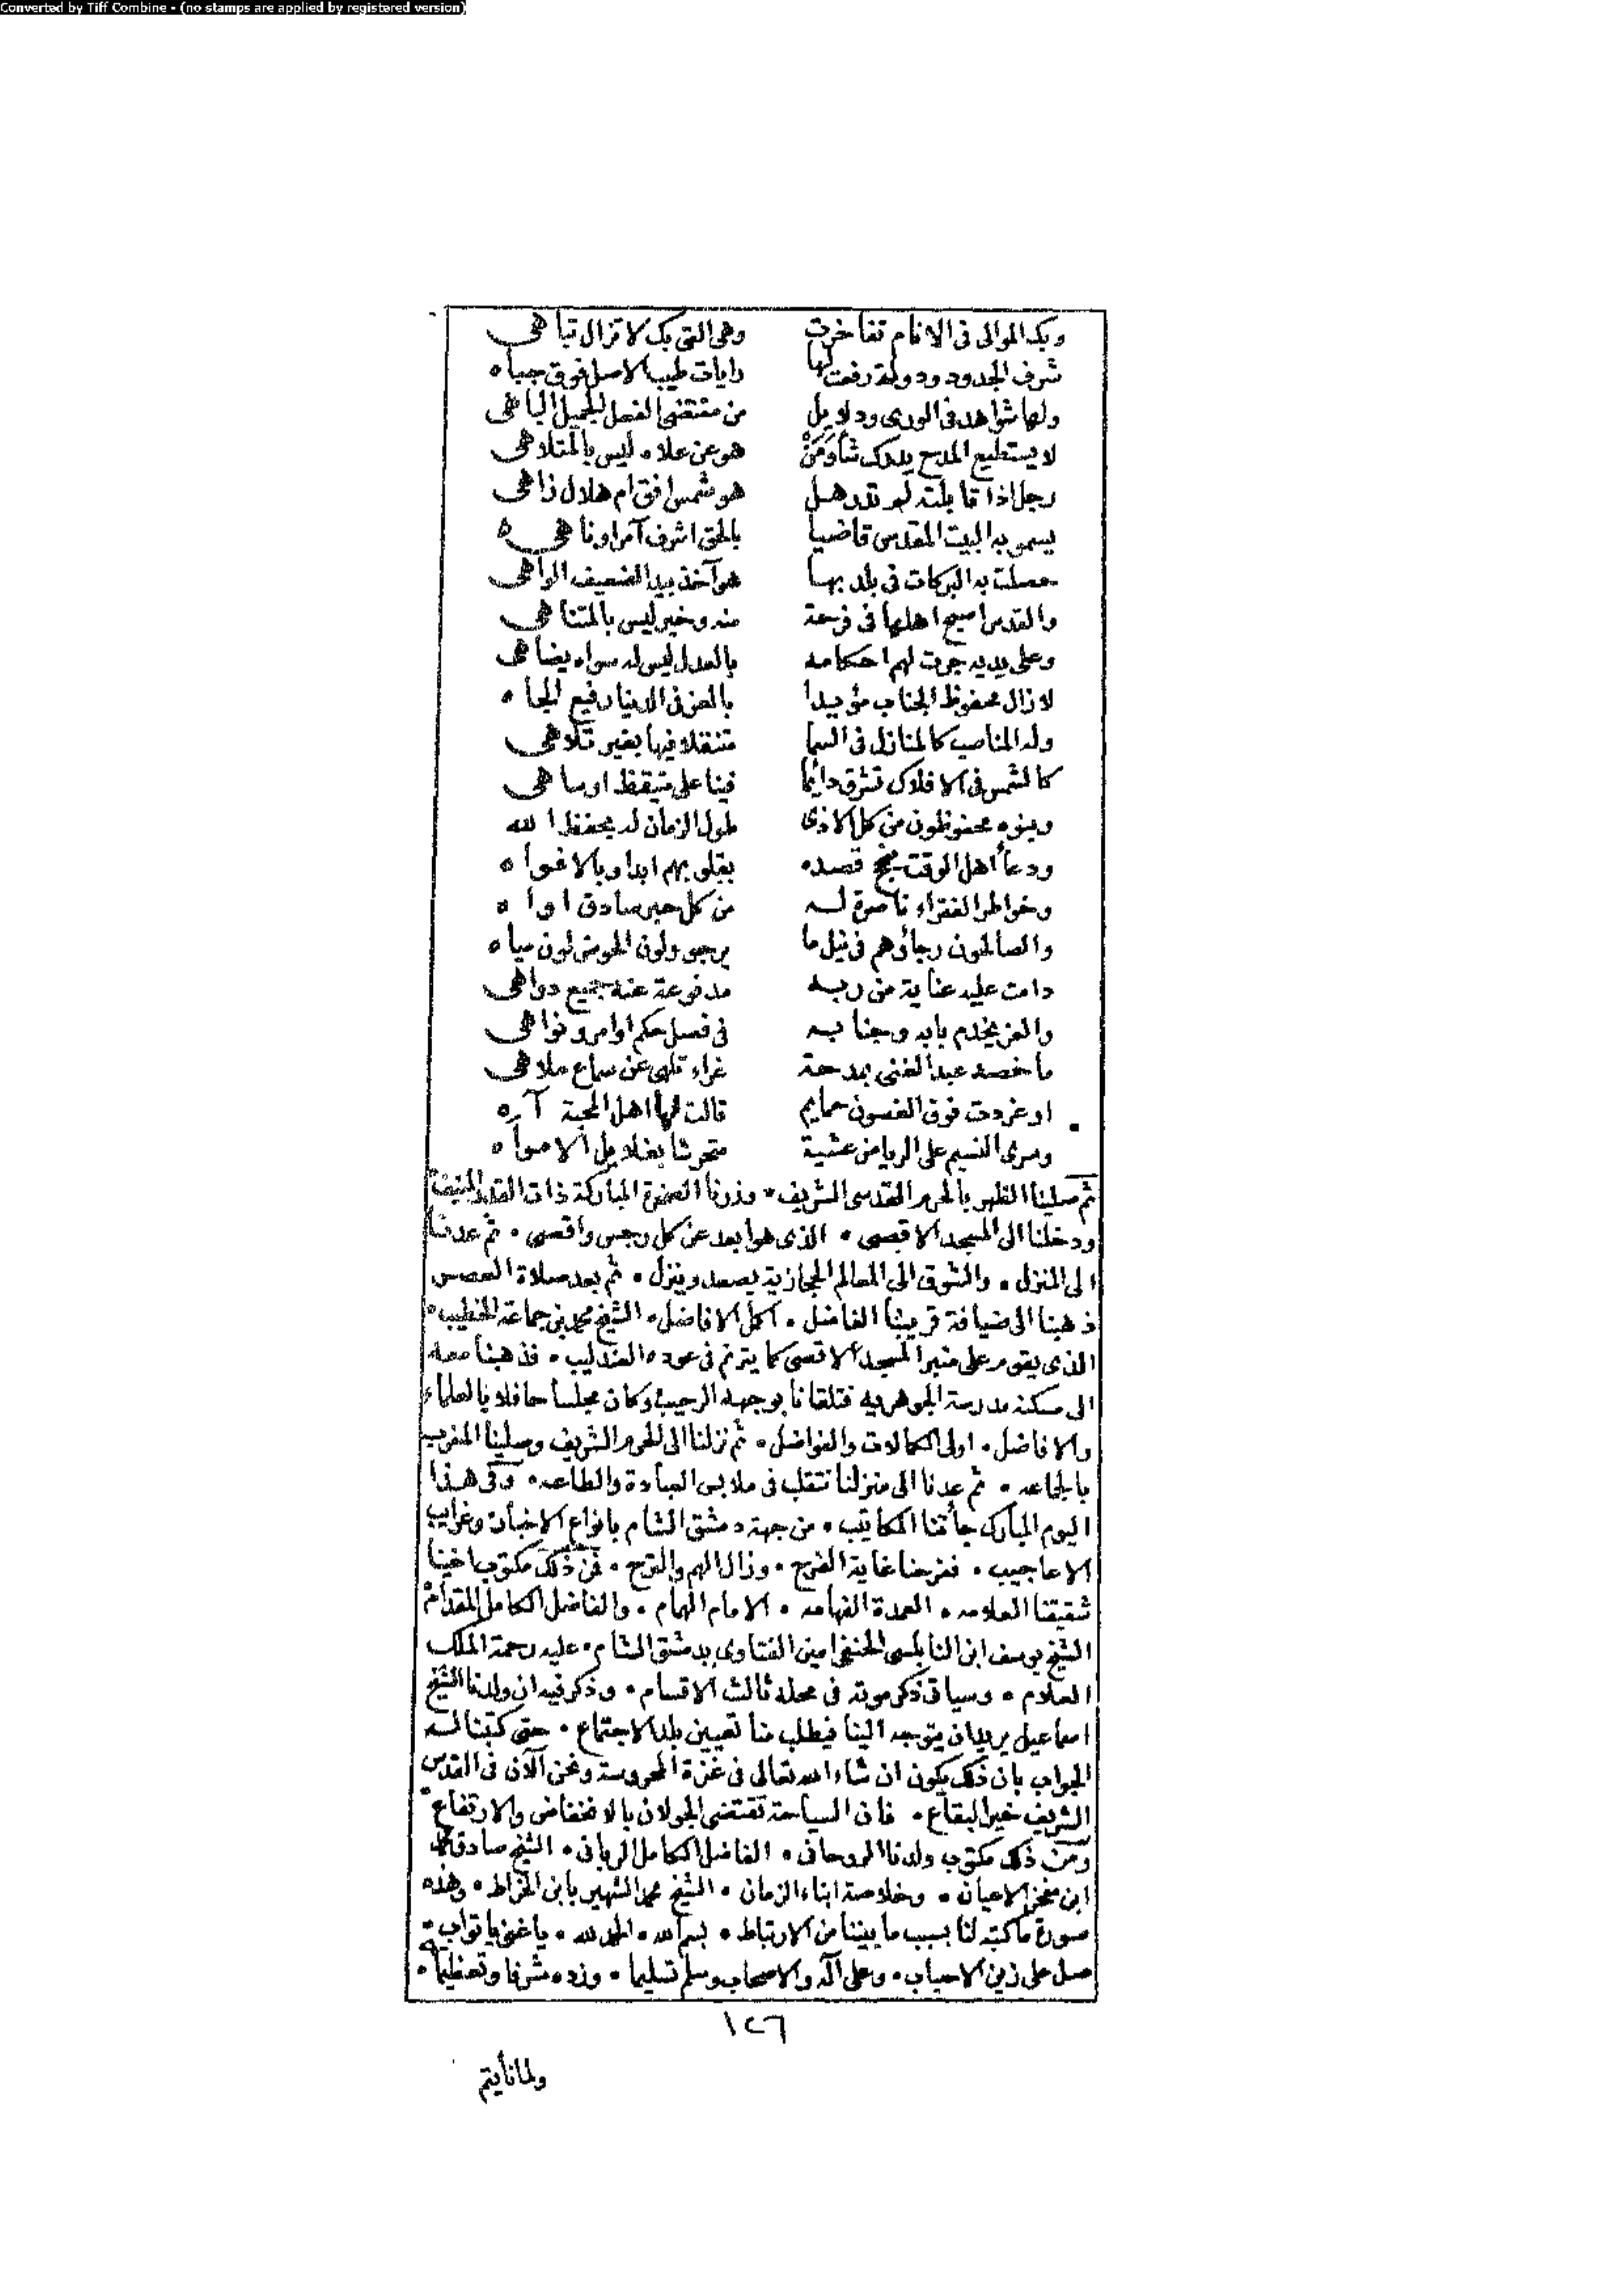 Converted by Tiff Combine - (no stamps are applied by registered version)
وبك الموالى فى الانام تفاخرت وهى التى بك لا تزال تباهى
شرف الجدود ودولة رفعت لها رايات طيب الاصل فوق جباه
ولها شواهد فى الورى ودلايل من مقتضى الفعل الجميل الباهى
لا يستطيع المدح يدرك شأو من هو عن علاه ليس بالمتلاهى
رجل اذا قابلته لم تدر هل هو شمس افق ام هلال زاهى
يسمو به البيت المقدس قاضيا بالحق اشرف آمر او ناهى
حصلت به البركات فى بلد بها هو آخذ بيد الضعيف الواهى
والقدس اصبح اهلها فى فرحة منه وخير ليس بالمتناهى
وعلى يديه جرت لهم احكامه بالعدل ليس له سواه يضاهى
لا زال محفوظ الجناب مؤيدا بالعز فى الدنيا رفيع الجاه
وله المناصب كالمنازل فى السما متنقلا فيها بغير تلاهى
كالشمس فى الافلاك تشرق دائما فينا على متيقظ او ساهى
وبنوه محفوظون من كل الاذى طول الزمان له بحفظ الله
ودعا أهل الوقت ينجح قصده بقلوبهم ابدا وبالافواه
وخواطر الفقراء ناصرة له من كل حبر صادق اواه
والصالحون رجاؤهم فى نيل ما يرجو ولون الحوض لون مياه
دامت عليه عناية من ربه مدفوعة عنه جميع دواهى
والعز يخدم بابه وجنابه فى فصل حكم اوامر ونواهى
ما خصه عبد الغنى بمدحة غراء تلهى عن سماع ملاهى
او غردت فوق الغصون حمايم قالت لها اهل المحبة آه
وسرى النسيم على الرياض عشية متحرشا بغلايل الامواه
ثم صلينا الظهر بالحرم القدسى الشريف وزرنا الصخرة المباركة ذات القدر المنيف
ودخلنا الى المسجد الاقصى الذى هو ابعد عن كل رجس واقصى ثم عدنا
الى المنزل والشوق الى المعالم الحجازية يصعد وينزل ثم بعد صلاة العصر
ذهبنا الى ضيافة قريبنا الفاضل اكمل الافاضل الشيخ محمد بن جماعة الخطيب
الذى يقوم على منبر المسجد الاقصى كما يترنم فى عوده العندليب فذهبنا معه
الى مسكنه مدرسة الجوهريه فتلقانا بوجهه الرحيب وكان مجلسا حافلا بالعلماء
والافاضل اولى الكمالات والفواضل ثم نزلنا الى الحرم الشريف وصلينا المغرب
بالجماعه ثم عدنا الى منزلنا نتقلب فى ملابس العبادة والطاعه وفى هذا
اليوم المبارك جاأتنا المكاتيب من جهة دمشق الشام بانواع الاخبار وغرايب
الاعاجيب ففرحنا غاية الفرح وزال الهم والترح فمن ذلك مكتوب اخينا
شقيقنا العلامه العمدة الفهامه الامام الهمام والفاضل الكامل المقدام
الشيخ يوسف ابن النابلسى الحنفى امين الفتاوى بدمشق الشام عليه رحمة الملك
العلام وسياتى ذكر موته فى محله ثالث الاقسام وذكر فيه ان ولدنا الشيخ
اسماعيل يريد ان يتوجه الينا فيطلب منا تعيين بلد الاجتماع حتى كتبنا له
الجواب بان ذلك يكون ان شاء الله تعالى فى غزة المحروسة ونحن الآن فى القدس
الشريف خير البقاع فان السياحة تقتضى الجولان بالانخفاض والارتفاع
ومن ذلك مكتوب ولدنا الروحانى الفاضل الكامل الربانى الشيخ صادق
ابن مفخر الاعيان وخلاصة ابناء الزمان الشيخ محمد الشهير بابن الخراط وهذه
صورة ما كتبه لنا بسبب ما بيننا من الارتباط بسم الله الحمد لله يا غنى يا تواب
صل على زين الاحباب وعلى آله والاصحاب وسلم تسليما وزده شرفا وتعظيما
١٢٦
ولما نأيتم